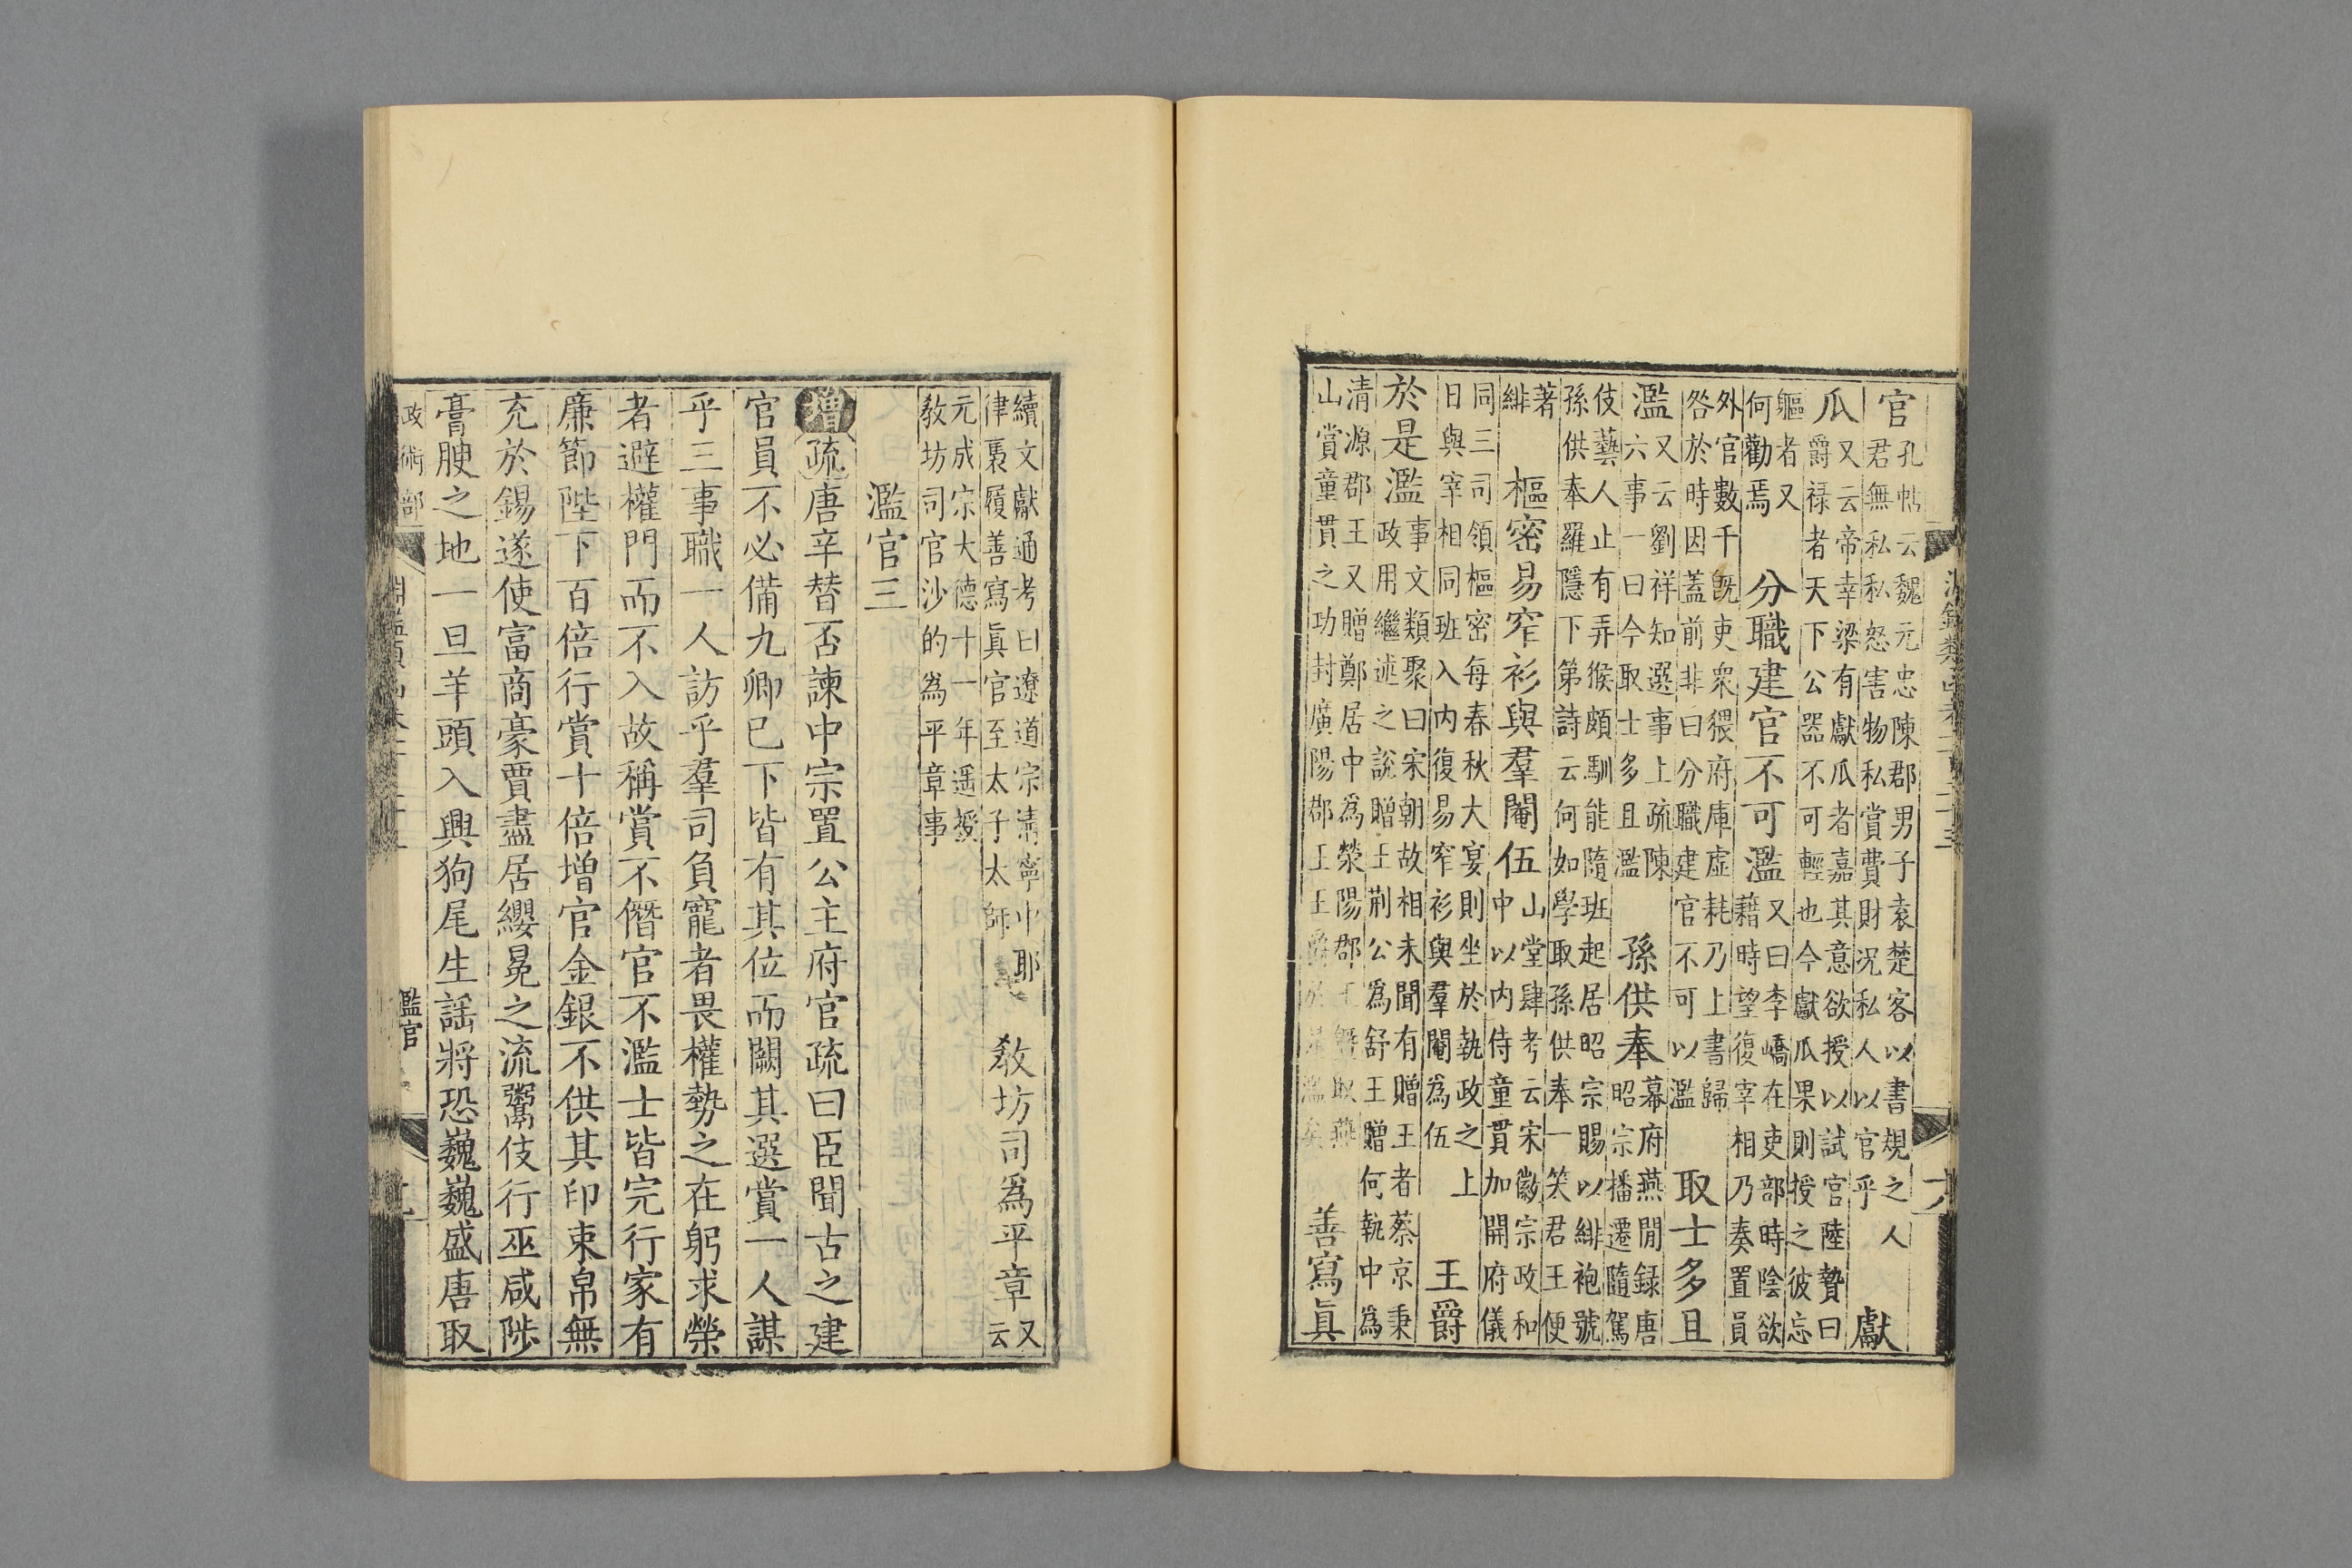 官孔帖云魏元忠陳郡男子袁楚客以書規之人君無私私怒害物私賞費財況私人以官乎獻
瓜又云帝幸梁有獻瓜者嘉其意欲授以試官陸贄曰爵祿者天下公器不可輕也今獻瓜果則授之彼忘
軀者又何勸焉分職建官不可濫又曰李嶠在吏部時陰欲藉時望復宰相乃奏置員
外官數千旣吏衆猥府庫虛耗乃上書歸咎於時因蓋前非曰分職建官不可以濫取士多且
濫又云劉祥知選事上疏陳六事一曰今取士多且濫孫供奉幕府燕閒録唐昭宗播遷隨駕
伎藝人止有弄猴頗馴能隨班起居昭宗賜以緋袍號孫供奉羅隱下第詩云何如學取孫供奉一笑君王便
著緋樞密易窄衫與羣閹伍山堂肆考云宋徽宗政和中以內侍童貫加開府儀
同三司領樞密每春秋大宴則坐於執政之上日與宰相同班入內復易窄衫與羣閹為伍王爵
於是濫事文類聚曰宋朝故相未聞有贈王者蔡京秉政用繼述之說贈王荆公為舒王贈何執中為
清源郡王又贈鄭居中為滎陽郡王曁取燕山賞童貫之功封廣陽郡王王爵於是濫矣善寫眞
續文獻通考曰遼道宗清寧中耶律褭履善寫眞官至太子太師教坊司為平章又云
元成宗大德十一年遥授教坊司官沙的為平章事
濫官三
增疏唐辛替否諫中宗置公主府官疏曰臣聞古之建
官員不必備九卿已下皆有其位而闕其選賞一人謀
乎三事職一人訪乎羣司負寵者畏權勢之在躬求榮
者避權門而不入故稱賞不僭官不濫士皆完行家有
廉節陛下百倍行賞十倍增官金銀不供其印束帛無
充於錫遂使富商豪賈盡居纓冕之流鬻伎行巫咸陟
膏腴之地一旦羊頭入興狗尾生謡將恐巍巍盛唐取
政術部
濫官